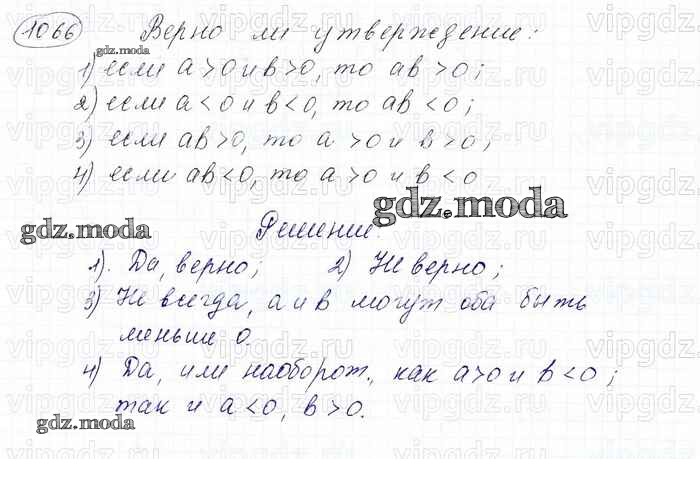 1066 Верно ли утверждение:
gdz.moda
1) если a>0 и b>0, то ab>0;
2) если a<0 и b<0, то ab<0;
3) если ab>0, то a>0 и b>0;
4) если ab<0, то a>0 и b<0
gdz.moda
gdz.moda
Решение.
1). Да, верно; 2) Не верно;
3) Не всегда, a и b могут оба быть
меньше 0.
4) Да, или наоборот, как a>0 и b<0;
так и a<0, b>0.
gdz.moda
vipgdz.ru